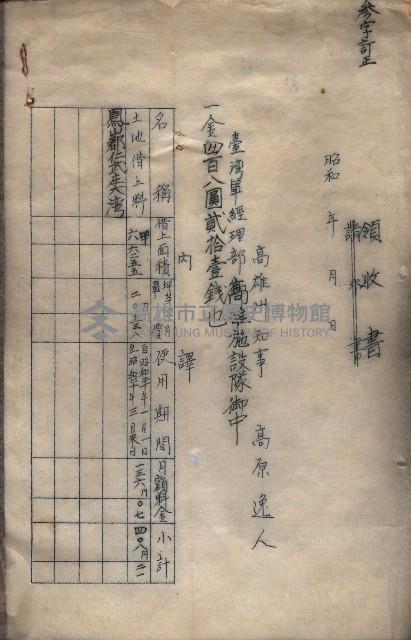 参字訂正
領收書
請求書
昭和 年 月 日
高雄州知事 高原逸人
臺灣軍經理部高雄施設隊御中
一金四百八圓貳拾壹錢也
內譯
名稱 借上面積 使用期間 月額料金 小計
土地借上料 甲 六六二五五 自昭和 年一月一日 至昭和 年三月末日 一三六円〇七 四〇八円二一
鳳山郡仁武庄大湾
高雄市立歷史博物館
KAOHSIUNG MUSEUM OF HISTORY